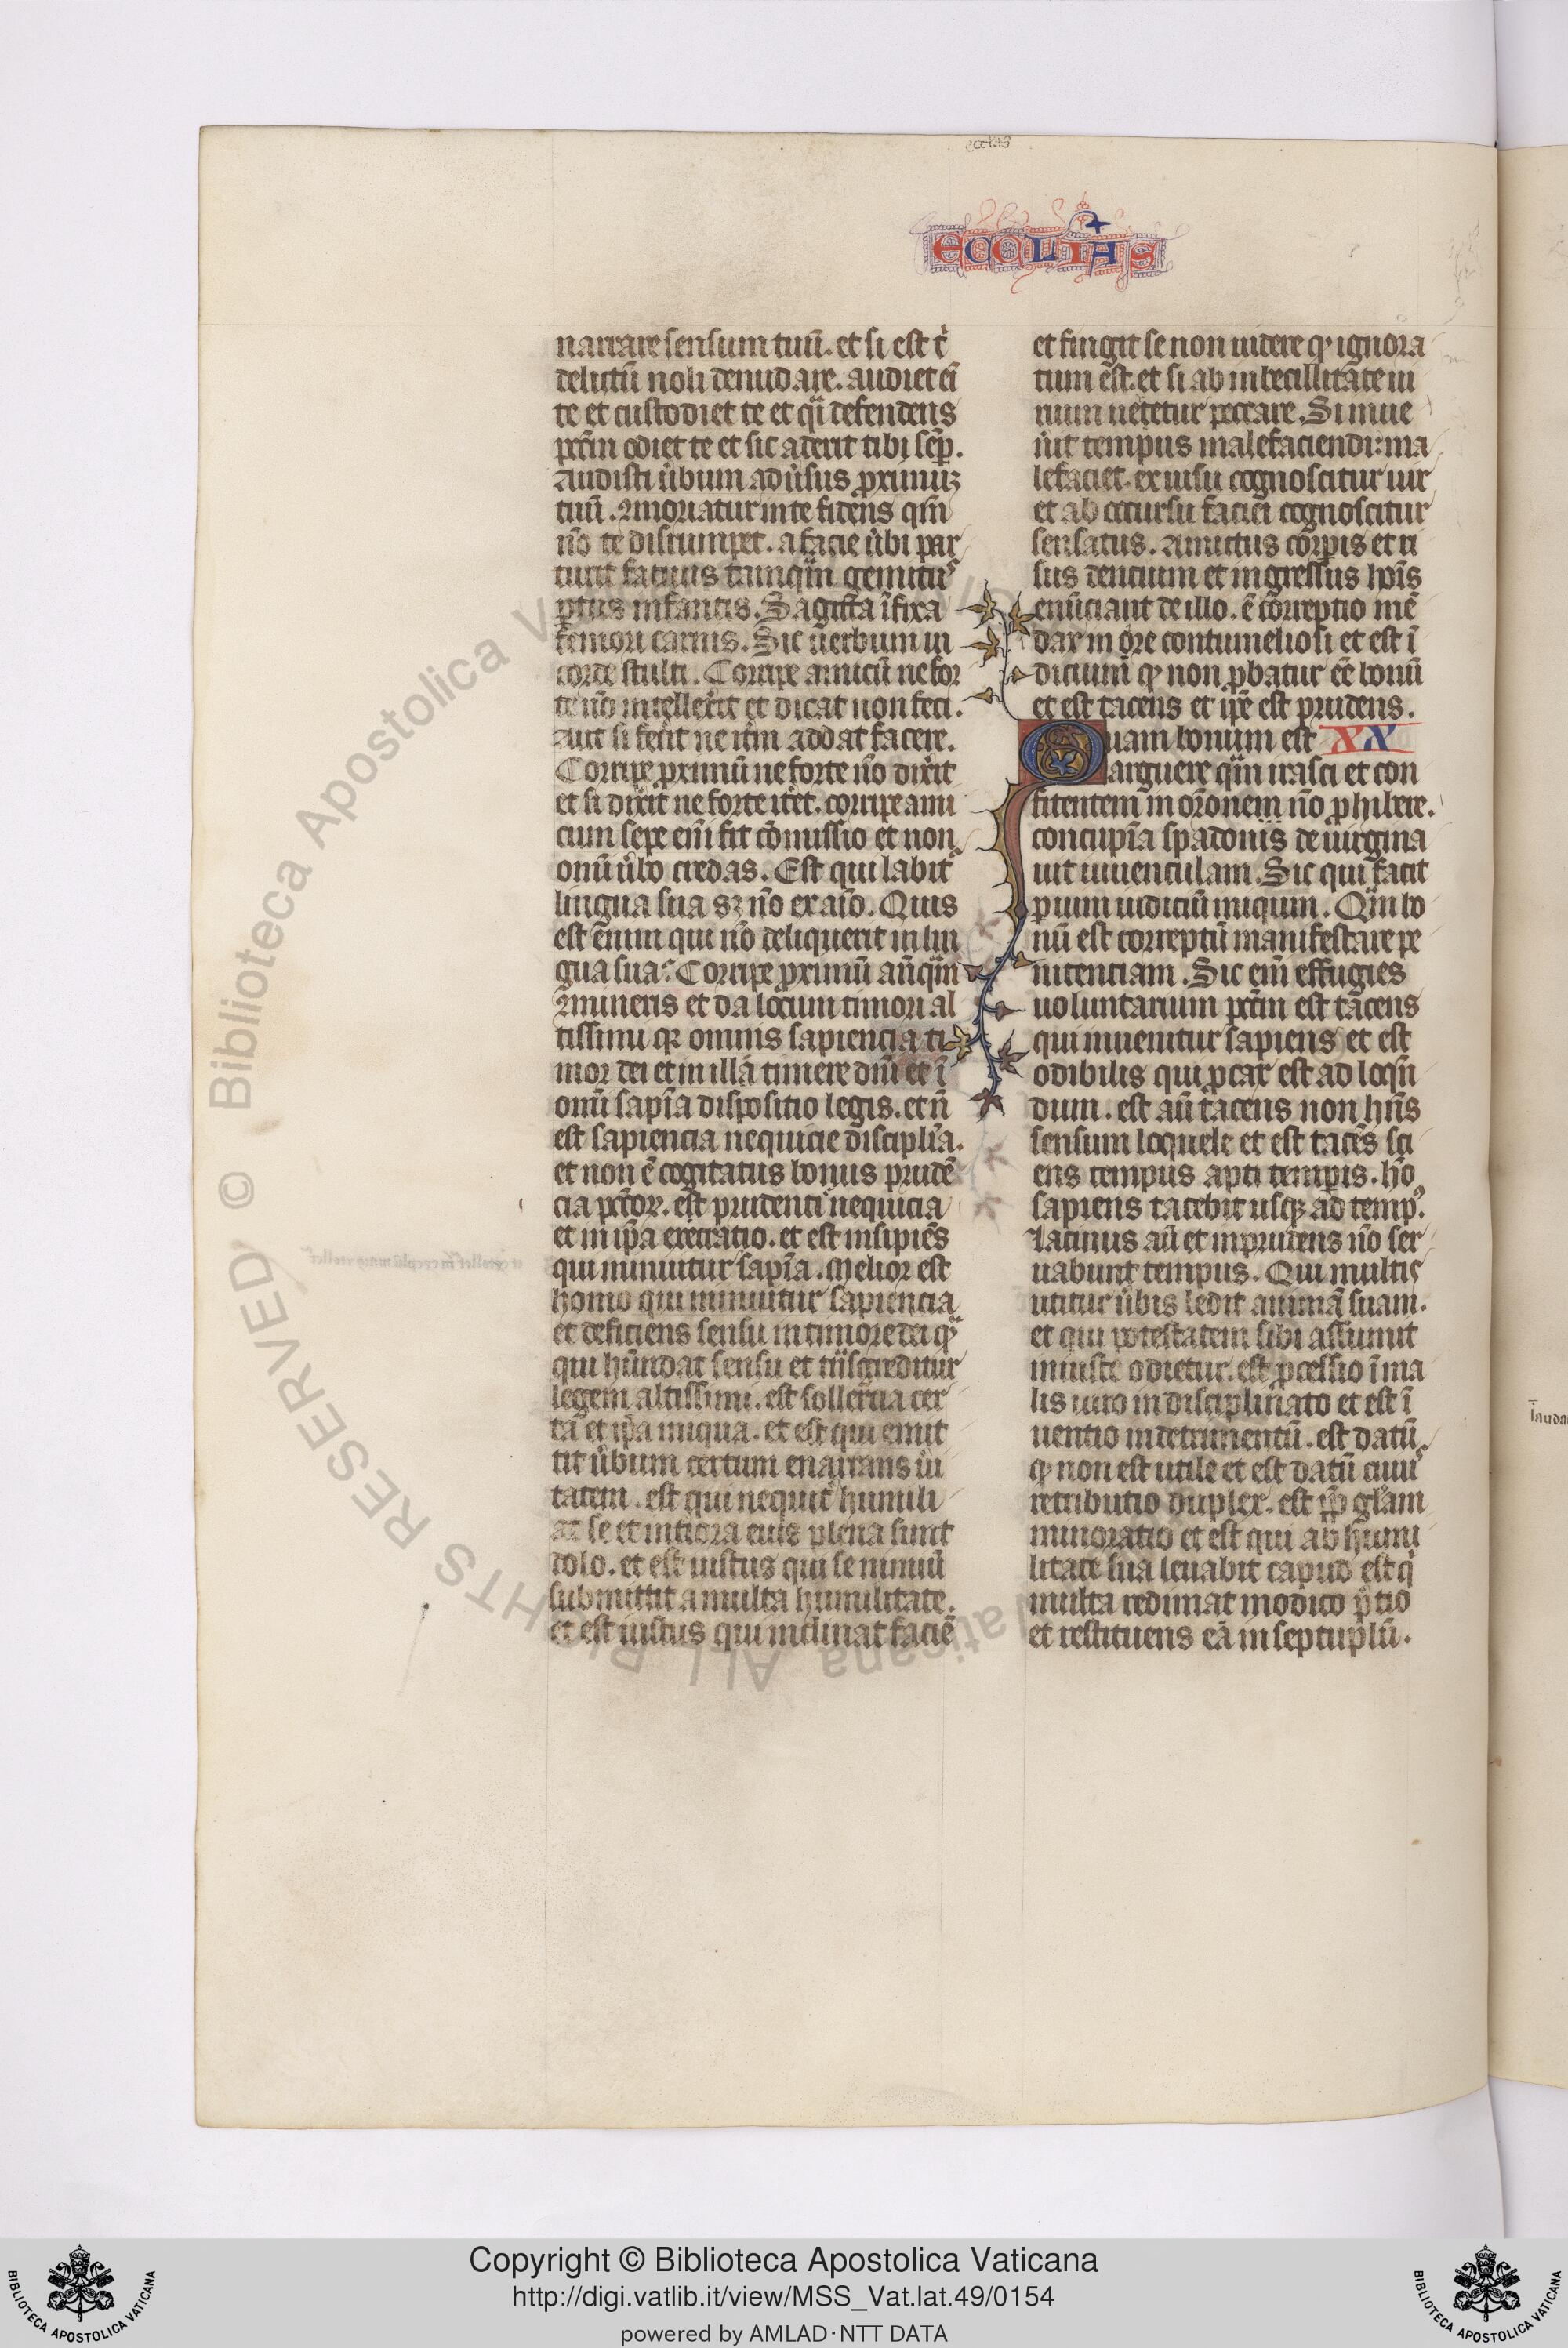 eccl'ias
ECCLIAS
narrare sensum tuũ. et si est t̾
delictũ noli denudare. audiet eĩ
te et custodiet te et q̃i defendens
pc̃tm odiet te et sic aderit tibi sẽp.
Audisti u̾bum adu̾sus ꝓximuꝫ
tuũ. ꝯmoriatur in te fidens qm̃
nõ te disrumpet. a facie u̾bi par
turit fatuus tamq̃m gemitus
ꝑtus infantis. Sagitta ĩfixa
femori carnis. Sic uerbum in
corde stulti. Corripe amicũ ne for
te nõ intellexit et dicat non feci.
aut si fecit ne itm̃ addat facere.
Corripe ꝓximũ ne forte nõ dixit
et si dixit ne forte itet. corripe ami
cum sepe em̃ fit cõmissio et non
omĩ u̾bo credas. Est qui labit᷑
lingua sua sꝫ nõ ex aĩo. Quis
est enim qui nõ deliquerit in lin
gua sua: Corripe ꝓximũ añq̃m
ꝯmineris et da locum timori al
tissimi qꝛ omnis sapiencia ti
mor dei et in illa timere dm̃ et ĩ
omĩ sapĩa dispositio legis. et ñ
est sapiencia nequicie disciplĩa.
et non ẽ cogitatus bonus prudẽ
cia pc̃torꝝ. est prudenti nequicia
et in ip̃a execratio. et est insipiẽs
qui minuitur sapĩa. Melior est
homo qui minuitur sapiencia
et deficiens sensu in timore dei q̃
qui hũndat sensu et tñsgreditur
legem altissimi. est sollertia cer
ta et ip̃a iniqua. et est qui emit
tit u̾bum certum enarrans ũi
tatem. est qui nequit̾ humili
at se et interiora eius plena sunt
dolo. et est iustus qui se nimiũ
submittit a multa humilitate.
et est iustus qui inclinat faciẽ
et fingit se non uidere qꝫ ignora
tum est. et si ab inbecillitate ui
rium uetetur peccare. Si inue
n̾it tempus malefaciendi: ma
lefaciet. ex uisu cognoscitur uir
et ab occursu faciei cognoscitur
sensatus. Amictus corporis et ri
sus dentium et ingressus hoĩs
enũciant de illo. ẽ correptio mẽ
dax in ore contumeliosi et est ĩ
dicium qꝫ non ꝓbatur eẽ bonũ
et est tacens et ip̃e est prudens.
Quam bonum est XX
arguere q̃m irasci et con
fitentem in or̃onem nõ ꝓhibere.
concupĩa spadonis deuirgina
uit iuuenculam. Sic qui facit
ꝑ uim iudiciũ iniqum. Q̃m bo
nũ est correptũ manifestare pe
nitenciam. Sic em̃ effugies
uoluntarium pc̃tm est tacens
qui inuenitur sapiens et est
odibilis qui ꝓcax est ad loqñ
dum. est aũ tacens non hñs
sensum loquele et est tacẽs sci
ens tempus apti tempis. hõ
sapiens tacebit usqꝫ ad tempꝰ.
lacinus aũ et inprudens nõ ser
uabunt tempus. Qui multis
utitur u̾bis ledit animã suam.
et qui potestatem sibi assumit
iniuste odietur. est ꝓcessio ĩ ma
lis uiro indisciplinato et est ĩ
uentio in detrimentũ. est datũ
qꝫ non est utile et est datũ cuiꝰ
retributio duplex. est ꝓp̃ gl̃am
minoratio et est qui ab humi
litate sua leuabit capud est q̾
multa redimat modico p̃tio
et restituens ea in septuplũ.
Copyright © Biblioteca Apostolica Vaticana
http://digi.vatlib.it/view/MSS_Vat.lat.49/0154
powered by AMLAD·NTT DATA
BIBLIOTECA APOSTOLICA VATICANA
BIBLIOTECA APOSTOLICA VATICANA
© Biblioteca Apostolica Vaticana ALL RIGHTS RESERVED